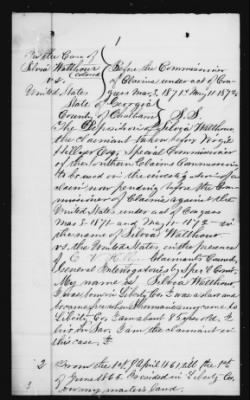 1
In the Case of
Silvia Walthour
(colored)
v.s.
United States
Before the Commissioners
of Claims under act of Con-
gress Mar. 3, 1871 & May 11 1872
State of Georgia
County of Chatham S.S.
The Deposition of Silvia Walthour
the claimant taken before
Hillyer Esq. Special Commissioner
of the Southern Claims Commission
to be used in the investigation of a
claim now pending before the Com-
missioners of Claims against the
United States under act of Congress
Mar 3 1871 and May 11 1872 in
the name of Silvia Walthour
vs. the United States in the presence
of Claimants Council,
General Interrogatories by Spec'l Com't.
My name is Silvia Walthour,
I was born in Liberty Co. I was a slave and
became free when Sherman's army came to
Liberty Co. I am about 85 years old.
I am the claimant in
this case.
2 From the 1st of April 1861 till the 1st
of June 1865 I resided in Liberty Co.
on my masters land.
3